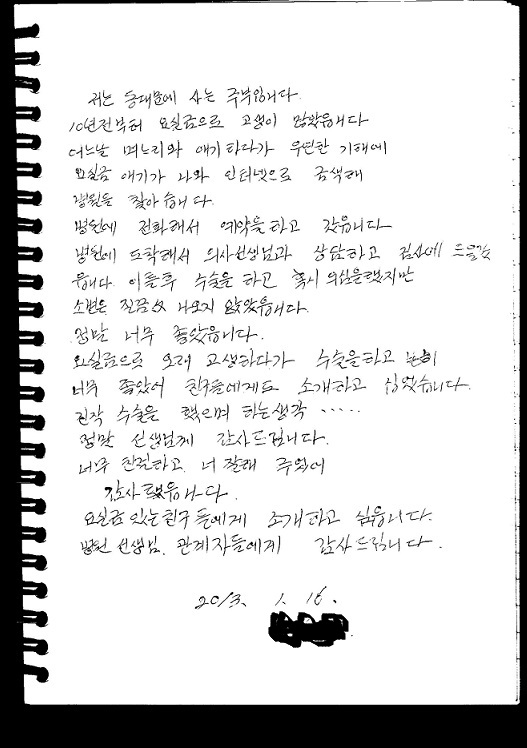 저는 동대문에 사는 주부입니다.
10년전부터 요실금으로 고생이 많았읍니다
어느날 며느리와 얘기하다가 우연한 기해에
요실금 얘기가 나와 인터넷으로 금색해
병원을 찾아습니다.
병원에 전화해서 예약을하고 갔읍니다
병원에 도착해서 의사선생님과 상담하고 검사에 드을갔
읍니다. 이틀후 수술을 하고 혹시 의심을했지만
소변은 조금도 나오지 않았읍니다.
정말 너무 좋았읍니다.
요실금으로 오래 고생하다가 수술을하고
너무 좋았어 친구들에게도 소개하고 십었습니다.
진작 수술을 했으며 하는생각 .....
정말 선생님께 감사드립니다.
너무 친절하고. 너 잘해 주워어
감사했읍니다.
요실금 있는친구들에게 소개하고 싶읍니다.
병원 선생님. 관계자들에게 감사드립니다.
2013. 1. 16.